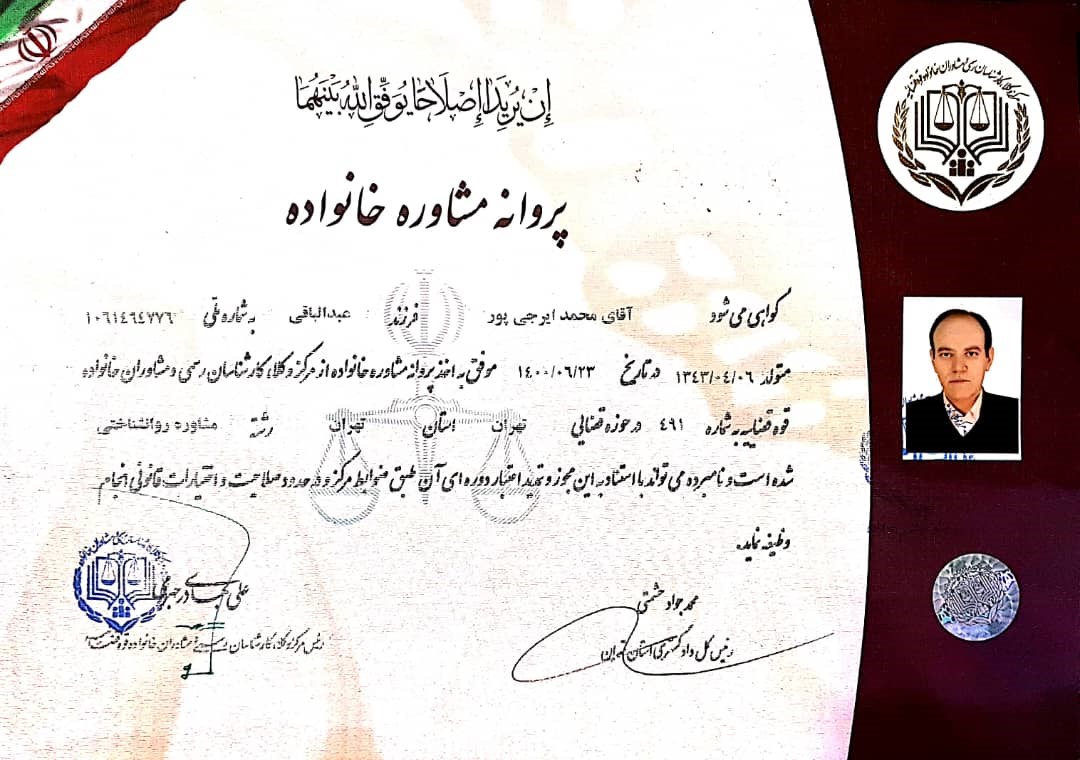 إِنْ يُرِيدَا إِصْلَاحًا يُوَفِّقِ اللَّهُ بَيْنَهُمَا
پروانه مشاوره خانواده
گواهی می شود آقای محمد ایرجی پور فرزند عبدالباقی به شماره ملی ۱۰۶۱۴۶۴۷۷۶
متولد ۱۳۴۳/۰۴/۰۶ در تاریخ ۱۴۰۰/۰۶/۲۳ موفق به اخذ پروانه مشاوره خانواده از مرکز وکلا، کارشناسان رسمی و مشاوران خانواده
قوه قضاییه به شماره ۴۹۱ در حوزه قضائی تهران استان تهران رشته مشاوره روانشناختی
شده است و نامبرده می تواند با استناد به این مجوز و تمدید اعتبار دوره ای آن طبق ضوابط مرکز و در حدود صلاحیت و اختیارات قانونی انجام
وظیفه نماید.
محمد جواد حشمتی
رئیس کل دادگستری استان تهران
علی بهادری جهرمی
رئیس مرکز وکلا، کارشناسان رسمی و مشاوران خانواده قوه قضاییه